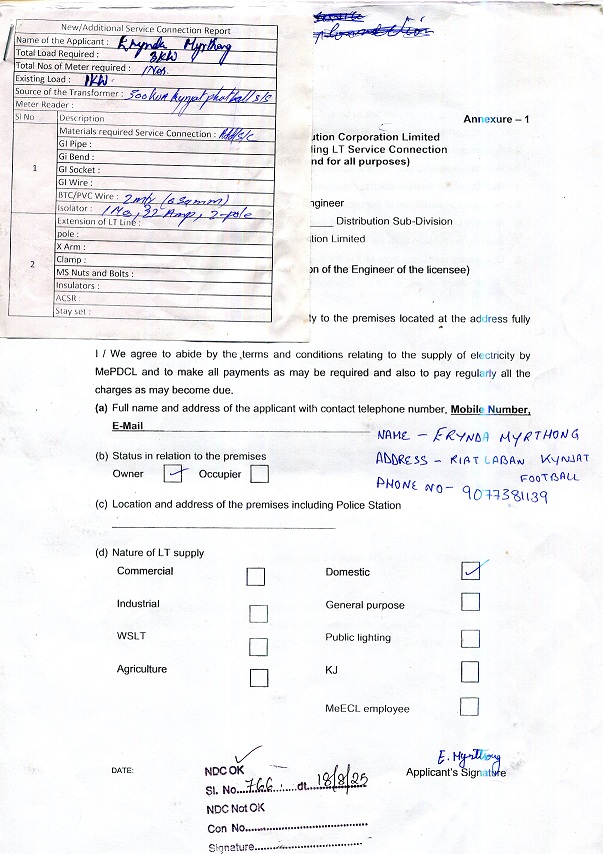 New/Additional Service Connection Report
Name of the Applicant : Erynda Myrthong
Total Load Required : 3KW
Total Nos of Meter required : 1No.
Existing Load : 1KW.
Source of the Transformer : 500KVA Kynjat phutball S/S
Meter Reader :
Sl No Description
Materials required Service Connection :
1
GI Pipe :
Gi Bend :
GI Socket :
GI Wire :
BTC/PVC Wire : 2mtr (6 sqmm)
Isolator : 1No, 32 Amp, 2-pole
Extension of LT Line :
2
pole :
X Arm :
Clamp :
MS Nuts and Bolts :
Insulators :
ACSR :
Stay set :
Annexure – 1
ution Corporation Limited
ling LT Service Connection
nd for all purposes)
ngineer
______ Distribution Sub-Division
tion Limited
on of the Engineer of the licensee)
ty to the premises located at the address fully
I / We agree to abide by the terms and conditions relating to the supply of electricity by
MePDCL and to make all payments as may be required and also to pay regularly all the
charges as may become due.
(a) Full name and address of the applicant with contact telephone number, Mobile Number,
E-Mail
NAME – ERYNDA MYRTHONG
ADDRESS – RIAT LABAN KYNJAT
FOOTBALL
PHONE NO – 9077381139
(b) Status in relation to the premises
Owner Occupier
(c) Location and address of the premises including Police Station
(d) Nature of LT supply
Commercial Domestic
Industrial General purpose
WSLT Public lighting
Agriculture KJ
MeECL employee
DATE:
NDC OK
Sl. No. 766 dt. 18/8/25
NDC Not OK
Con No.
Signature
E. Myrthong
Applicant's Signature